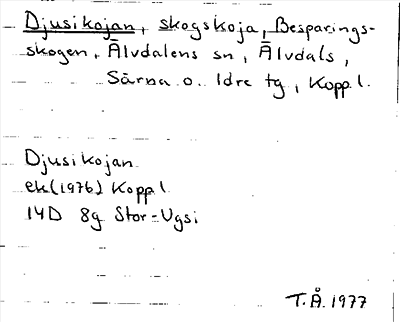 Djusikojan, skogskoja, Besparings-
skogen, Älvdalens sn, Älvdals,
Särna o. Idre tg, Kopp l.
Djusikojan
ek (1976) Kopp l
14D 8g Stor-Ugsi
T.Å. 1977